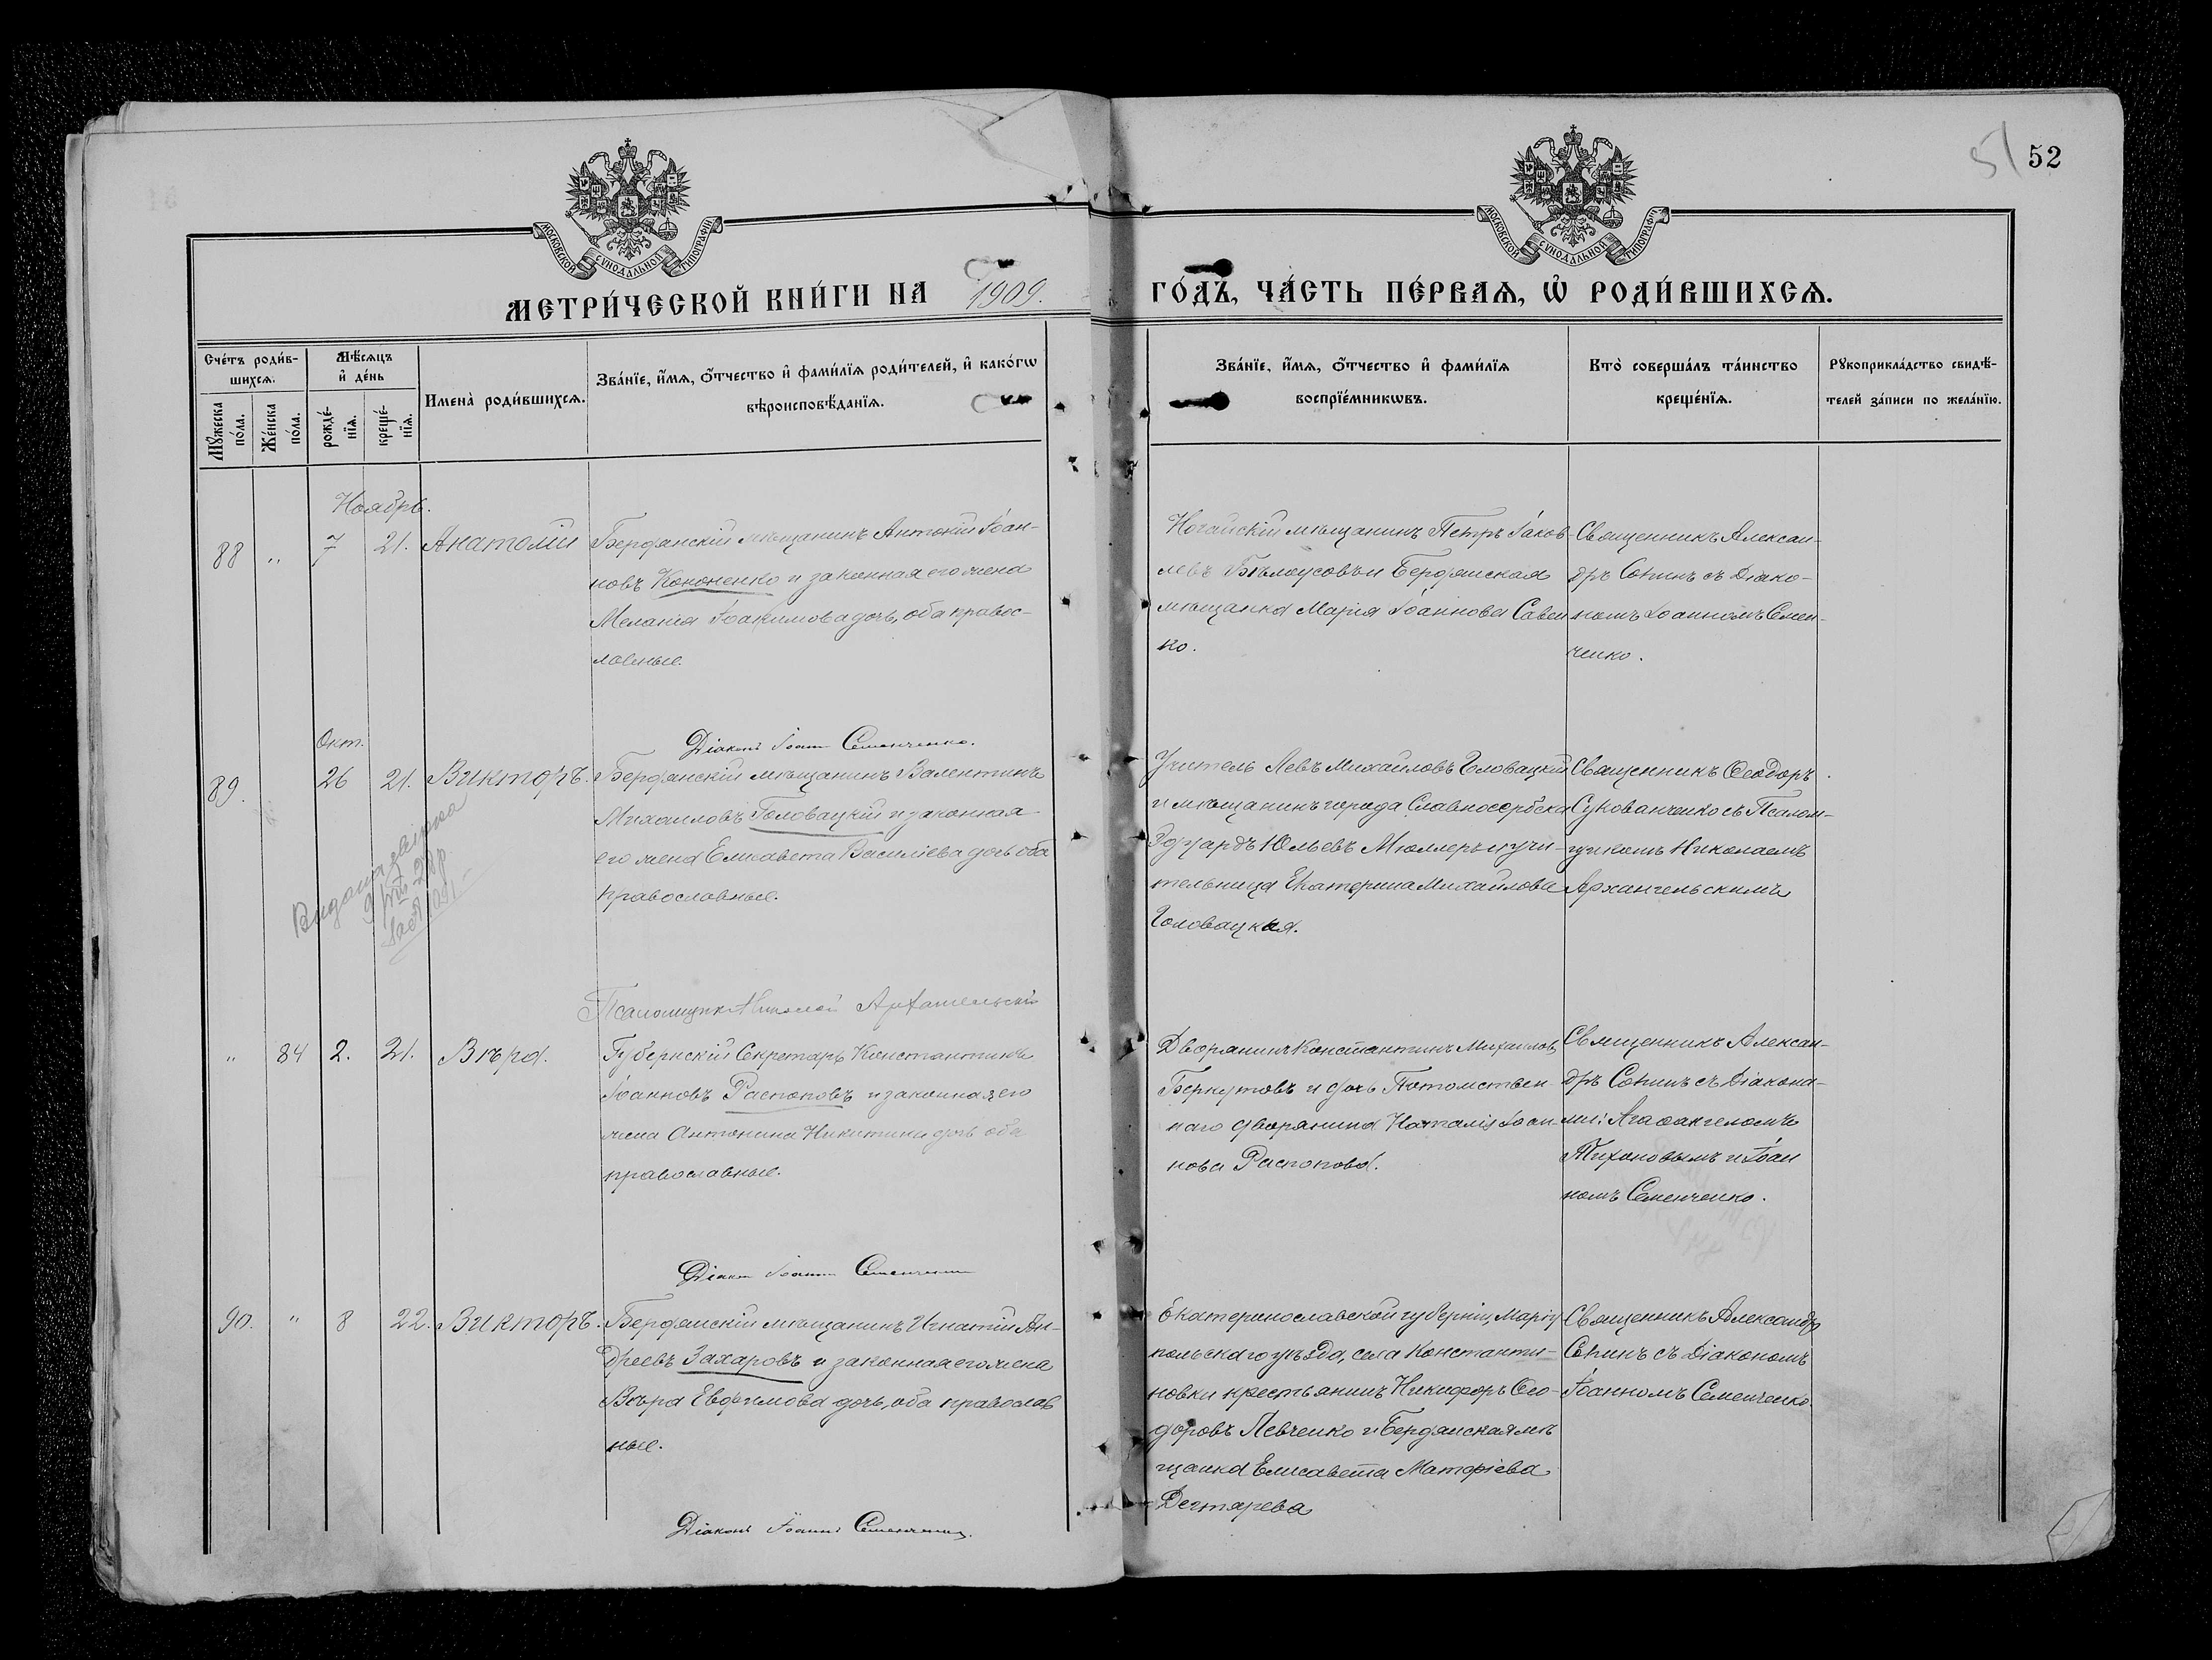 51 52
МОСКОВСКОЙ СѴНОДАЛЬНОЙ ТИПОГРАФІИ
МОСКОВСКОЙ СѴНОДАЛЬНОЙ ТИПОГРАФІИ
МЕТРИ́ЧЕСКОЙ КНИ́ГИ НА 1909. ГО́ДЪ, ЧА́СТЬ ПЕ́РВАЯ, Ѡ҆ РОДИ́ВШИХСЯ.
Сче́тъ роди́в-
шихся.
Мꙋ́жеска по́ла.
Же́нска по́ла.
Мѣ́сяцъ
и҆ де́нь
рожде́-
нїя.
креще́-
нїя.
Имена̀ роди́вшихся.
Зва́нїе, и҆́мя, ѻ҆́тчество и҆ фами́лїя роди́телей, и҆ како́гѡ
вѣроисповѣ́данїя.
Зва́нїе, и҆́мя, ѻ҆́тчество и҆ фами́лїя
воспрїе́мникѡвъ.
Кто̀ соверша́лъ та́инство
креще́нїя.
Рꙋкоприкла́дство свидѣ́-
телей за́писи по жела́нїю.
Ноябрь.
88 " 7 21. Анатолій
Бердянскій мѣщанинъ Антоній Іоан-
новъ Кононенко и законная его жена
Меланія Іоакимова дочь, оба правос-
лавные.
Ногайскій мѣщанинъ Петръ Іаков-
левъ Бѣлоусовъ и Бердянская
мѣщанка Марія Іоаннова Савен
ко.
Священникъ Алексан-
дръ Сопинъ съ Діако-
номъ Іоанномъ Семен-
ченко.
Діаконъ Іоаннъ Семенченко.
Окт.
89. 26 21. Викторъ.
Бердянскій мѣщанинъ Валентинъ
Михаиловъ Головацкій и законная
его жена Елисавета Василіева дочь оба
православные.
Учитель Левъ Михайловъ Головацкій
и мѣщанинъ города Славяносербска
Эдуардъ Юльевъ Мюллеръ и учи-
тельница Екатерина Михайлова
Головацкая.
Священникъ Ѳеодоръ
Сукованченко съ Псалом-
щикомъ Николаемъ
Архангельскимъ
Псаломщикъ Николай Архангельскій
" 84 2. 21. Вѣра.
Губернскій Секретарь Константинъ
Іоанновъ Распоповъ и законная его
жена Антонина Никитина дочь оба
православные.
Дворянинъ Константинъ Михаиловъ
Беркутовъ и дочь Потомствен
наго дворянина Наталія Іоан-
нова Распопова.
Священникъ Алексан-
дръ Сопинъ съ Діакона-
ми: Агаѳангеломъ
Тихоновымъ и Іоан
номъ Семенченко.
Діаконъ Іоаннъ Семенченко
90. " 8 22. Викторъ.
Бердянскій мѣщанинъ Игнатій Ан-
дреевъ Захаровъ и законная его жена
Вѣра Евфимова дочь, оба православ
ные.
Екатеринославской губерніи, Маріу
польскаго уѣзда, села Константи-
новки крестьянинъ Никифоръ Ѳео-
доровъ Левченко и Бердянская мѣ
щанка Елисавета Матѳіева
Дегтярева
Священникъ Александръ
Сопинъ съ Діакономъ
Іоанномъ Семенченко.
Діаконъ Іоаннъ Семенченко.